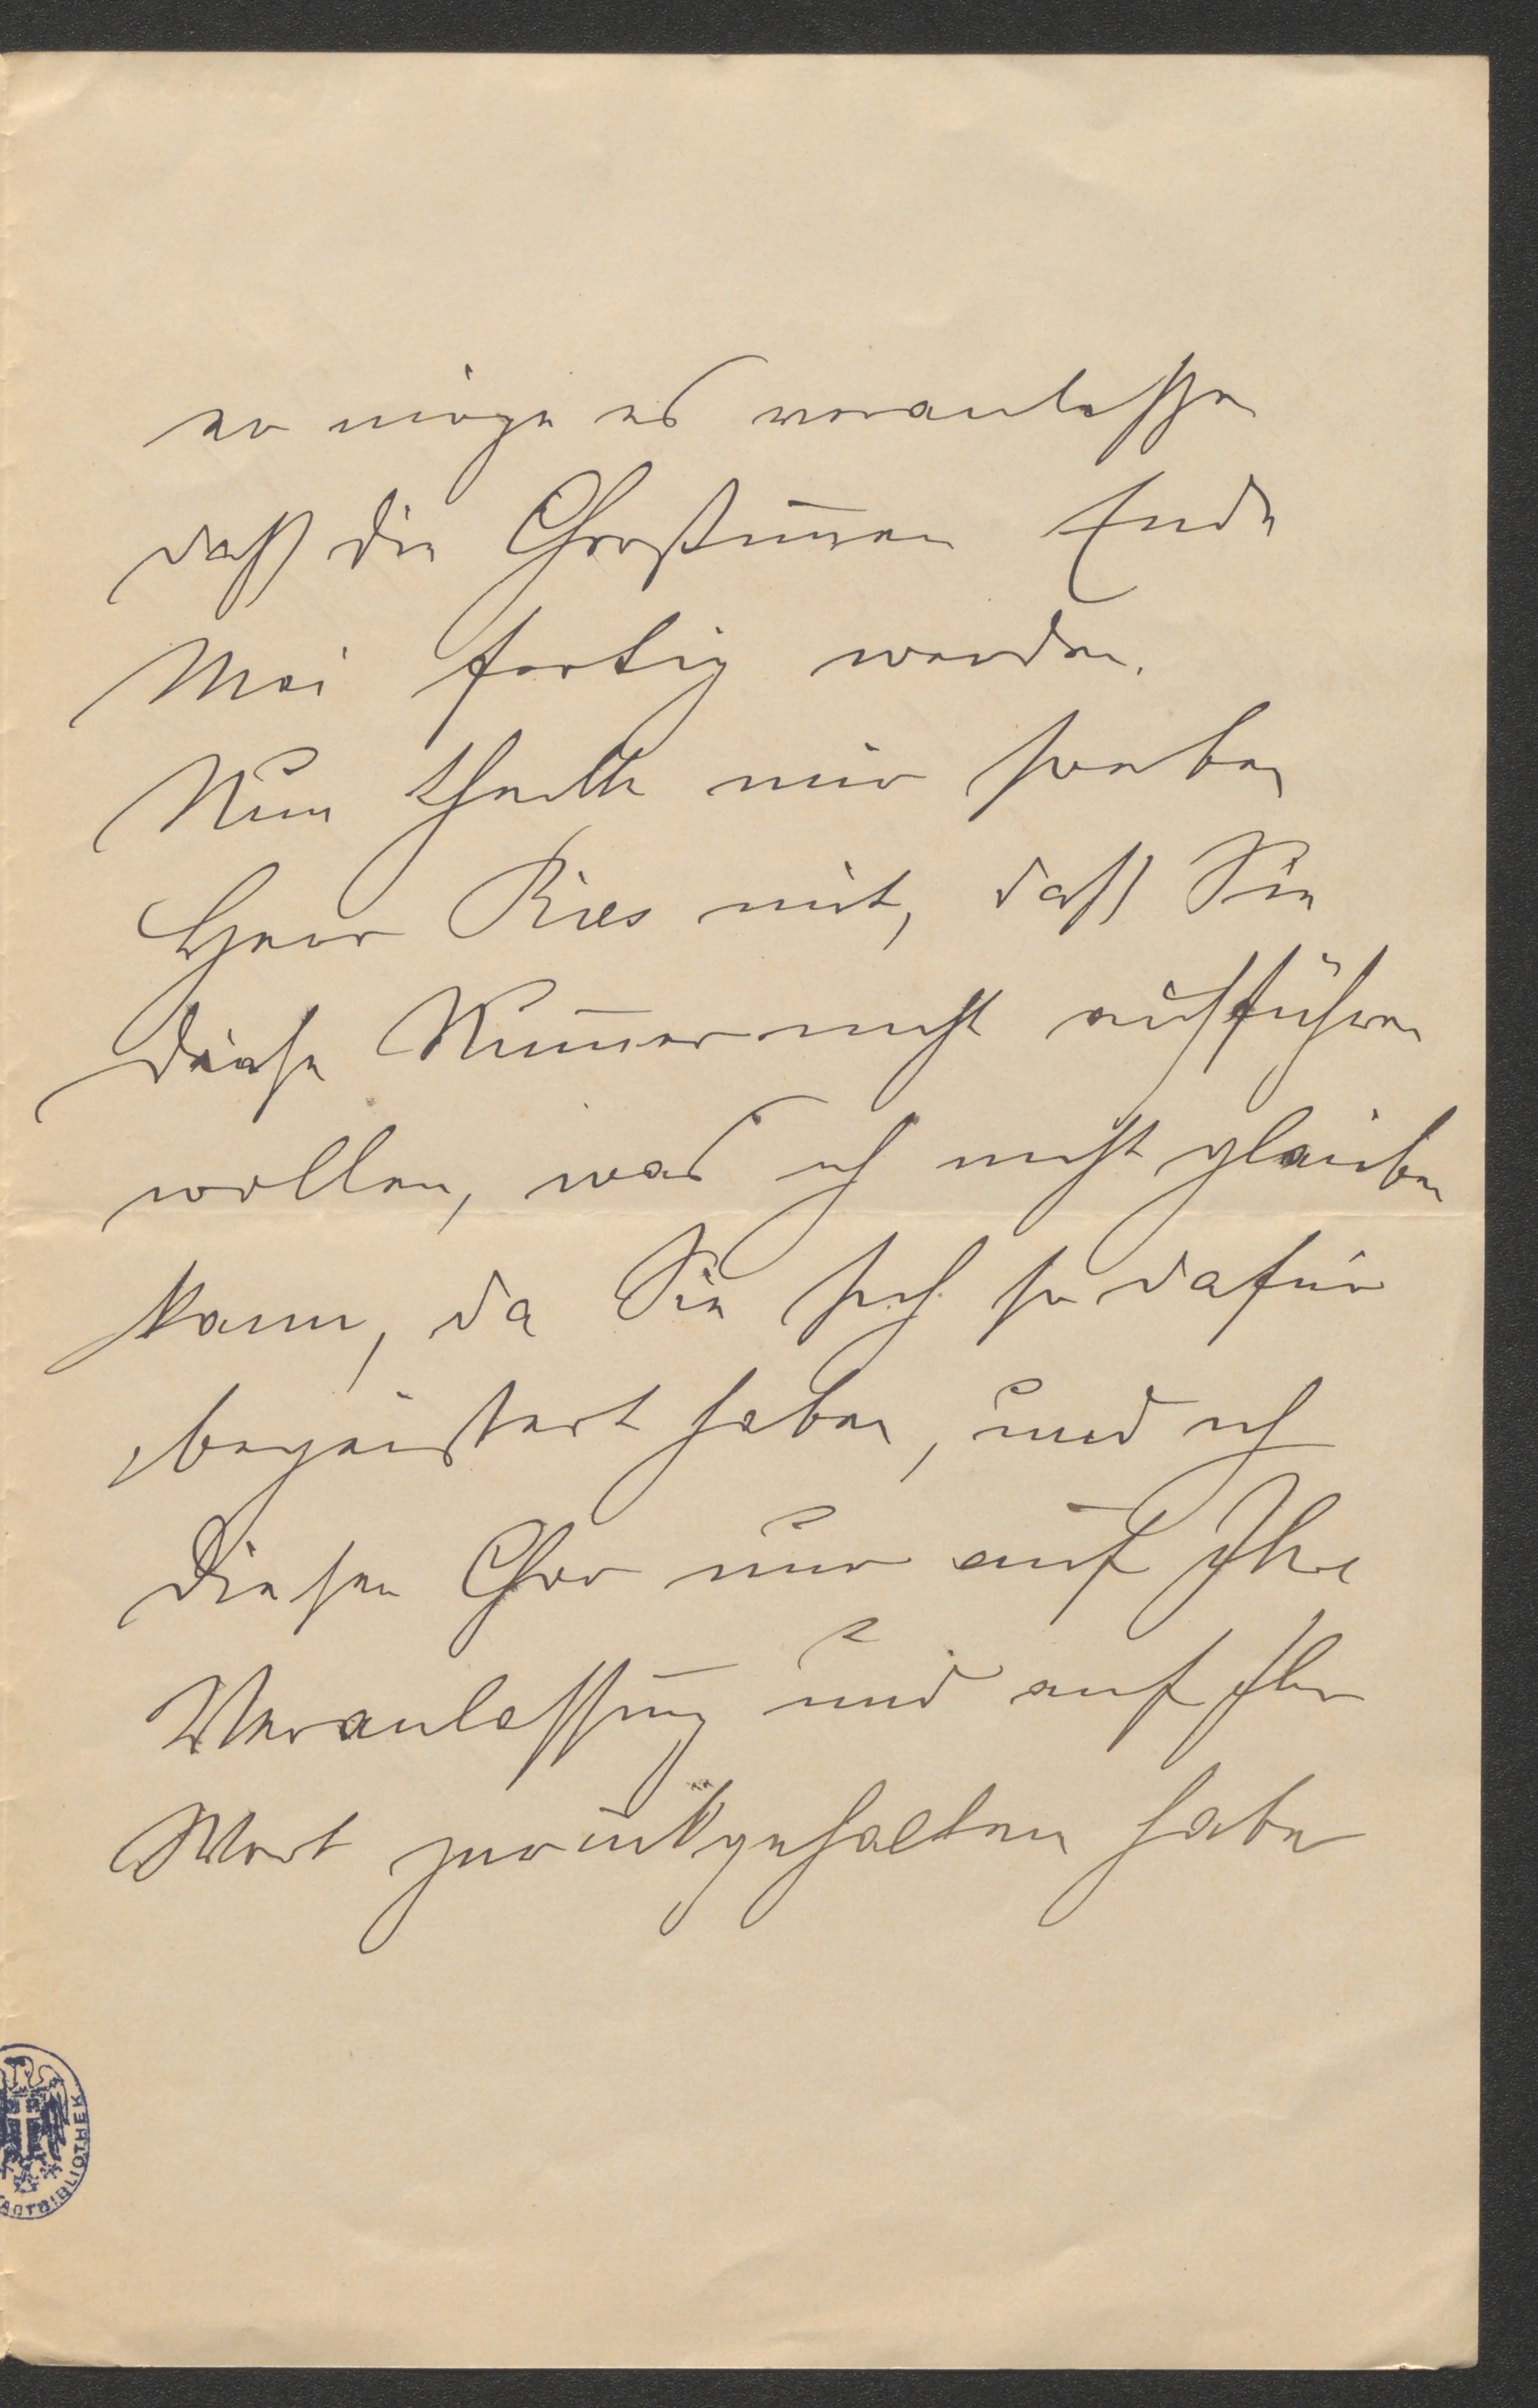 er möge es veranlassen
daß die Chorstim̅en Ende
Mai fertig werden.
Nun theilte mir soeben
Herr Ries mit, daß Sie
diese Num̅er nicht aufführen
wollen, was ich nicht glauben
kann, da Sie sich so dafür
begeistert haben, und ich
diesen Chor nur auf Ihre
Veranlassung und auf Ihr
Wort zurückgehalten habe
STADTBIBLIOTHEK